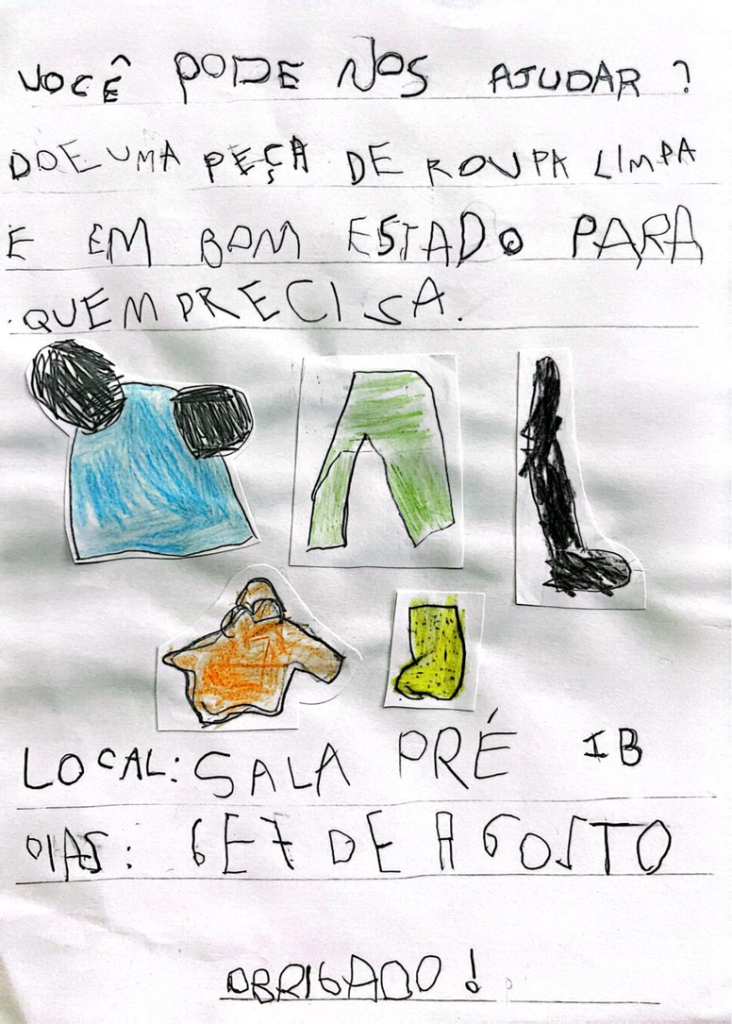 VOCÊ PODE NOS AJUDAR?
DOE UMA PEÇA DE ROUPA LIMPA
E EM BOM ESTADO PARA
QUEM PRECISA.
LOCAL: SALA PRÉ IB
DIAS: 6 E 7 DE AGOSTO
OBRIGADO!